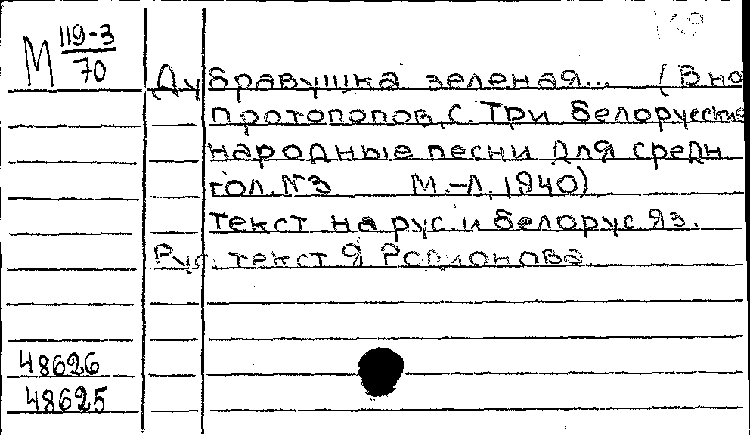 М 119-3
70
Дубравушка зеленая... (В кн
Протопопов, С. Три белорусские
народные песни для средн.
гол. №3 М.-Л., 1940)
Текст на рус. и белорус. яз.
Рус. текст Я Родионова
48626
48625